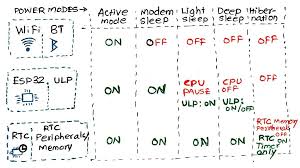 POWER MODES→ Active mode Modem sleep Light sleep Deep sleep Hiber-nation
WiFi BT ON OFF OFF OFF OFF
ESP32, ULP ON ON CPU PAUSE ULP: ON CPU OFF ULP: ON/OFF OFF
RTC RTC Peripherals/ Memory ON ON ON ON RTC Memory Peripherals OFF RTC Timer only